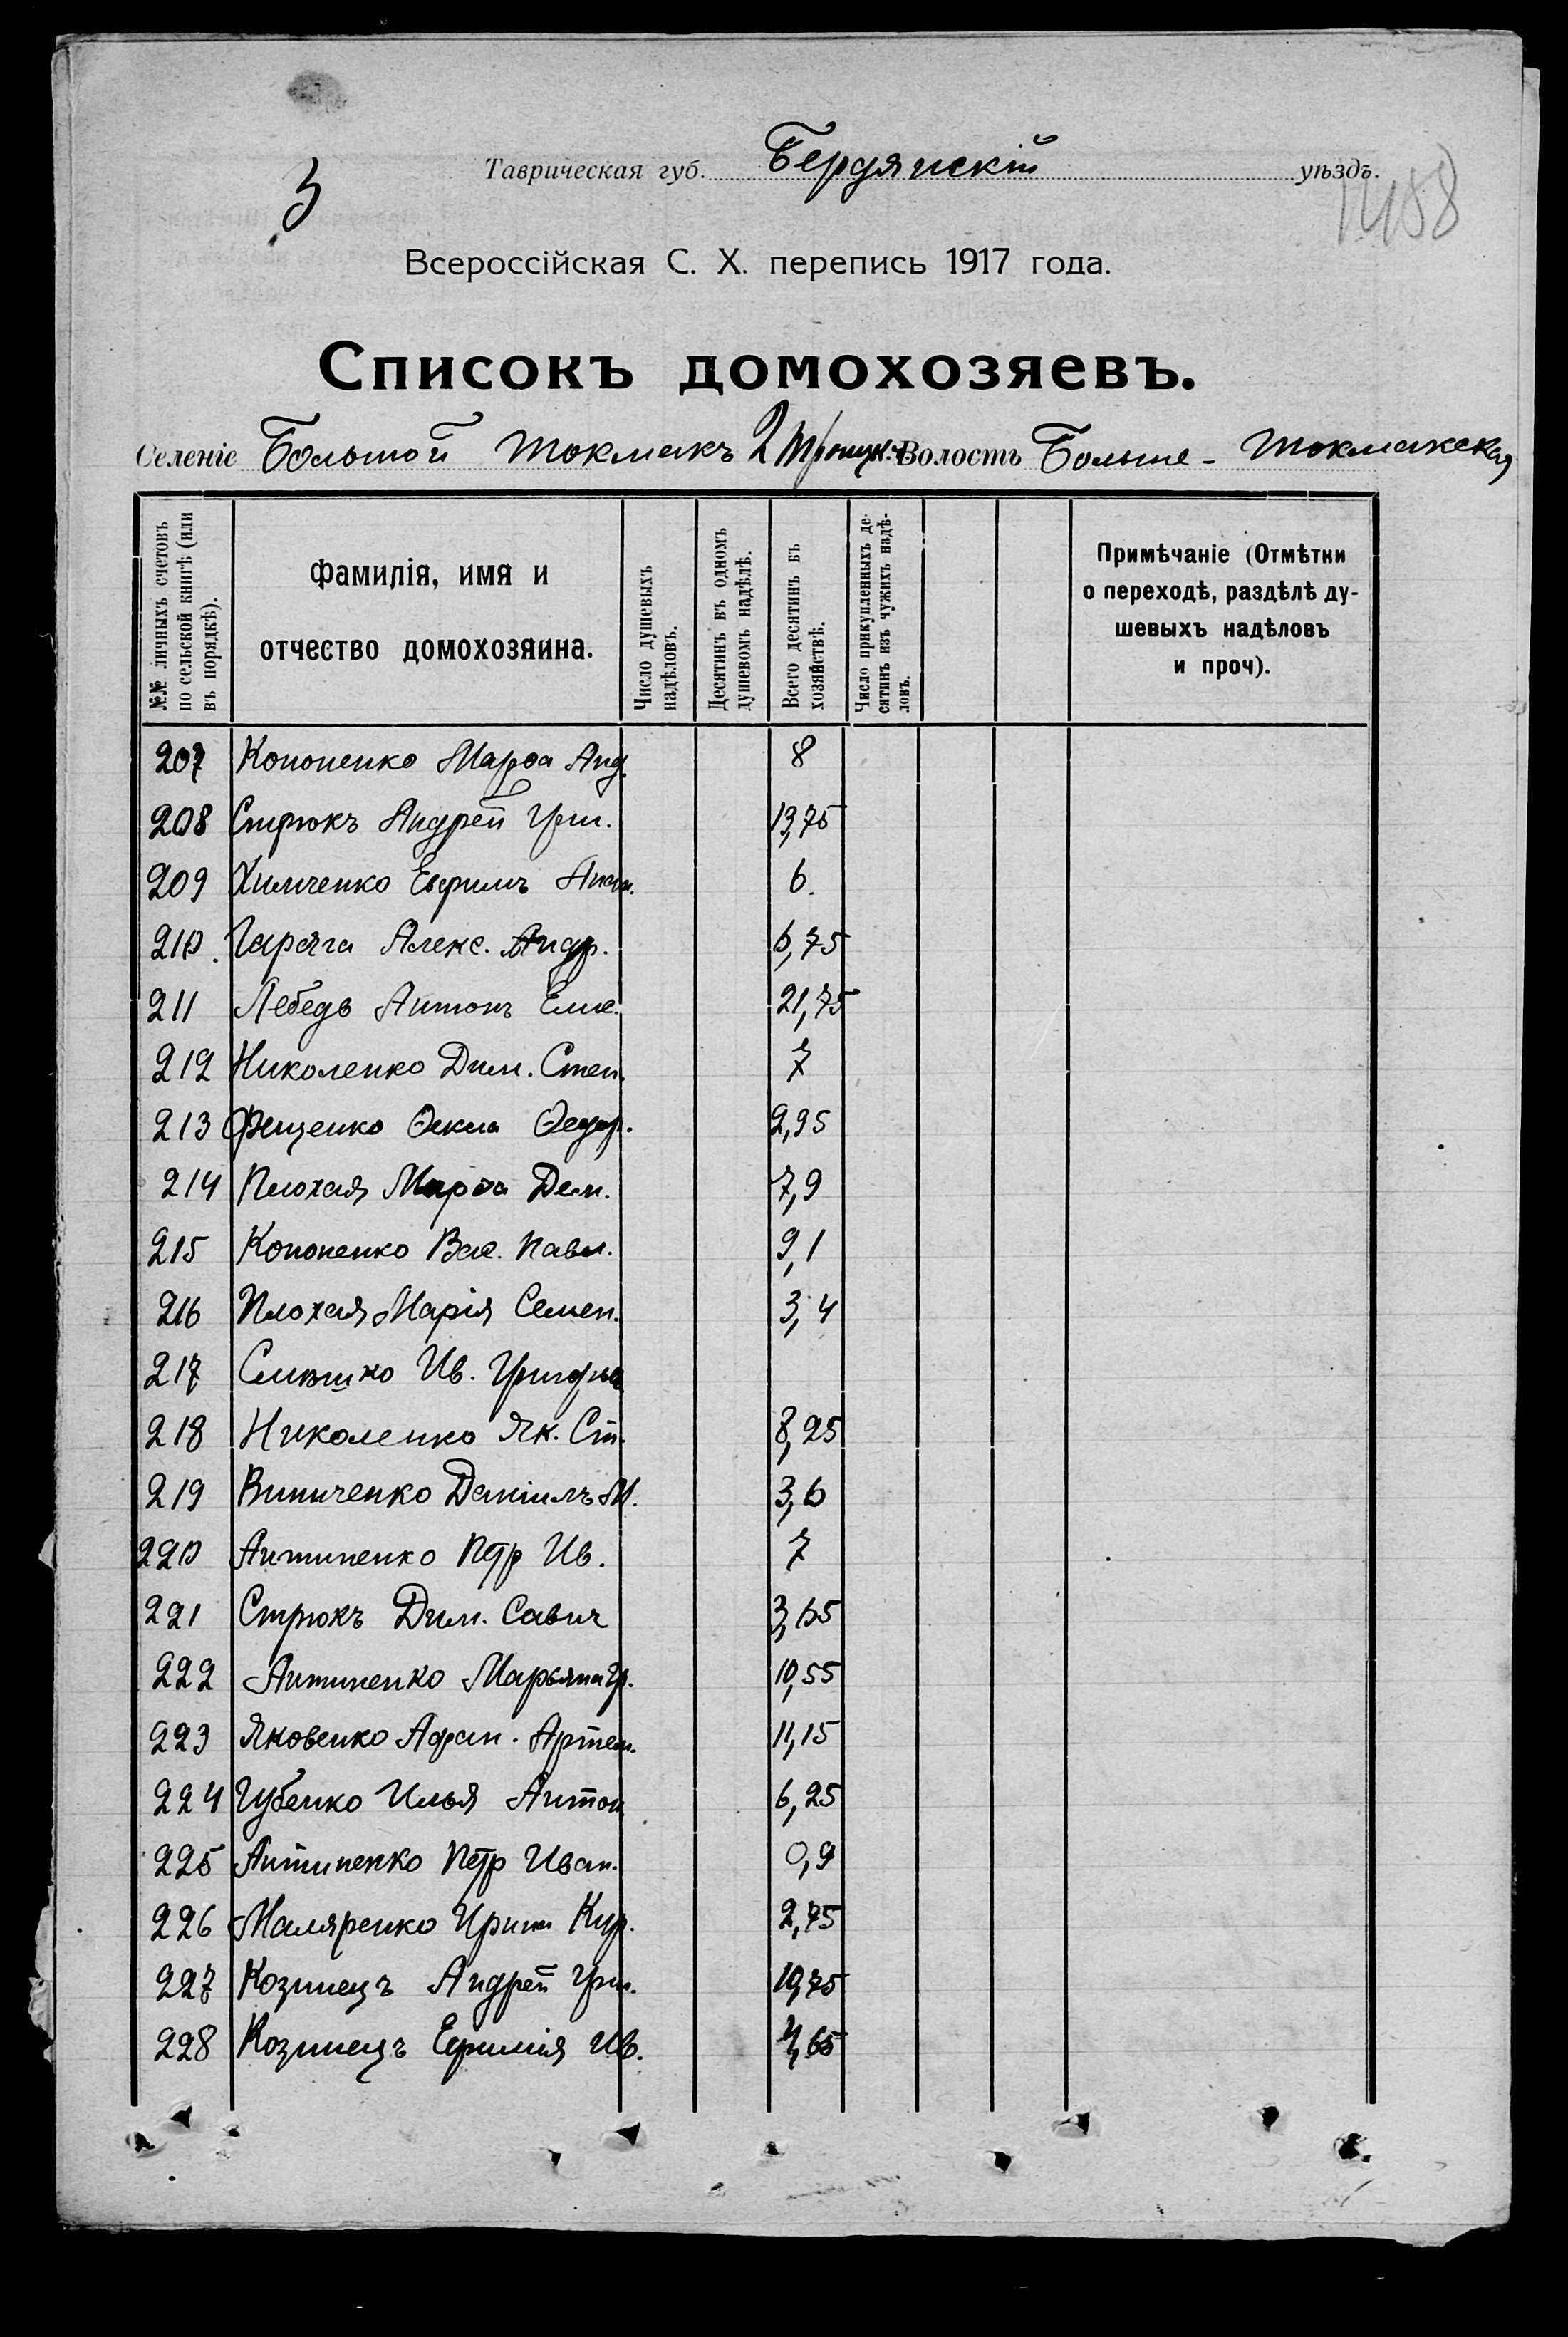 3
Таврическая губ. Бердянскій уѣздъ.
1458
Всероссійская С. Х. перепись 1917 года.
Списокъ домохозяевъ.
Селеніе Большой Токмакъ 2 Троицк. Волость Больше-Токмакская
№№ личныхъ счетовъ по сельской книгѣ (или въ порядкѣ).
Фамилія, имя и отчество домохозяина.
Число душевыхъ надѣловъ.
Десятинъ въ одномъ душевомъ надѣлѣ.
Всего десятинъ въ хозяйствѣ.
Число прикупленныхъ десятинъ изъ чужихъ надѣловъ.
Примѣчаніе (Отмѣтки о переходѣ, раздѣлѣ душевыхъ надѣловъ и проч).
207 Кононенко Марѳа Анд. 8
208 Стрюкъ Андрей Гри. 13,75
209 Химченко Ефимъ 6.
210. Гаряга Алекс. Андр. 6,75
211 Лебедь Антонъ Емел. 21,75
212 Николенко Дим. Степ. 7
213 Фещенко Ѳекла Ѳедор. 2,95
214 Плохая Марѳа Дем. 7,9
215 Кононенко Вас. Павл. 9,1
216 Плохая Марія Семен. 3,4
217 Ив.
218 Николенко Як. Ст. 8,25
219 Виниченко Даніилъ М. 3,6
220 Антипенко Петр Ив. 7
221 Стрюкъ Дим. Савич 3,65
222 Антипенко Марьяна Гр. 10,55
223 Яковенко Афан. Артем. 11,15
224 Губенко Илья Антон 6,25
225 Антипенко Петр Иван. 0,9
226 Маляренко Ирина Кир. 2,75
227 Козинецъ Андрей Гри. 10,75
228 Козинецъ Ефимія Ив. 4,65